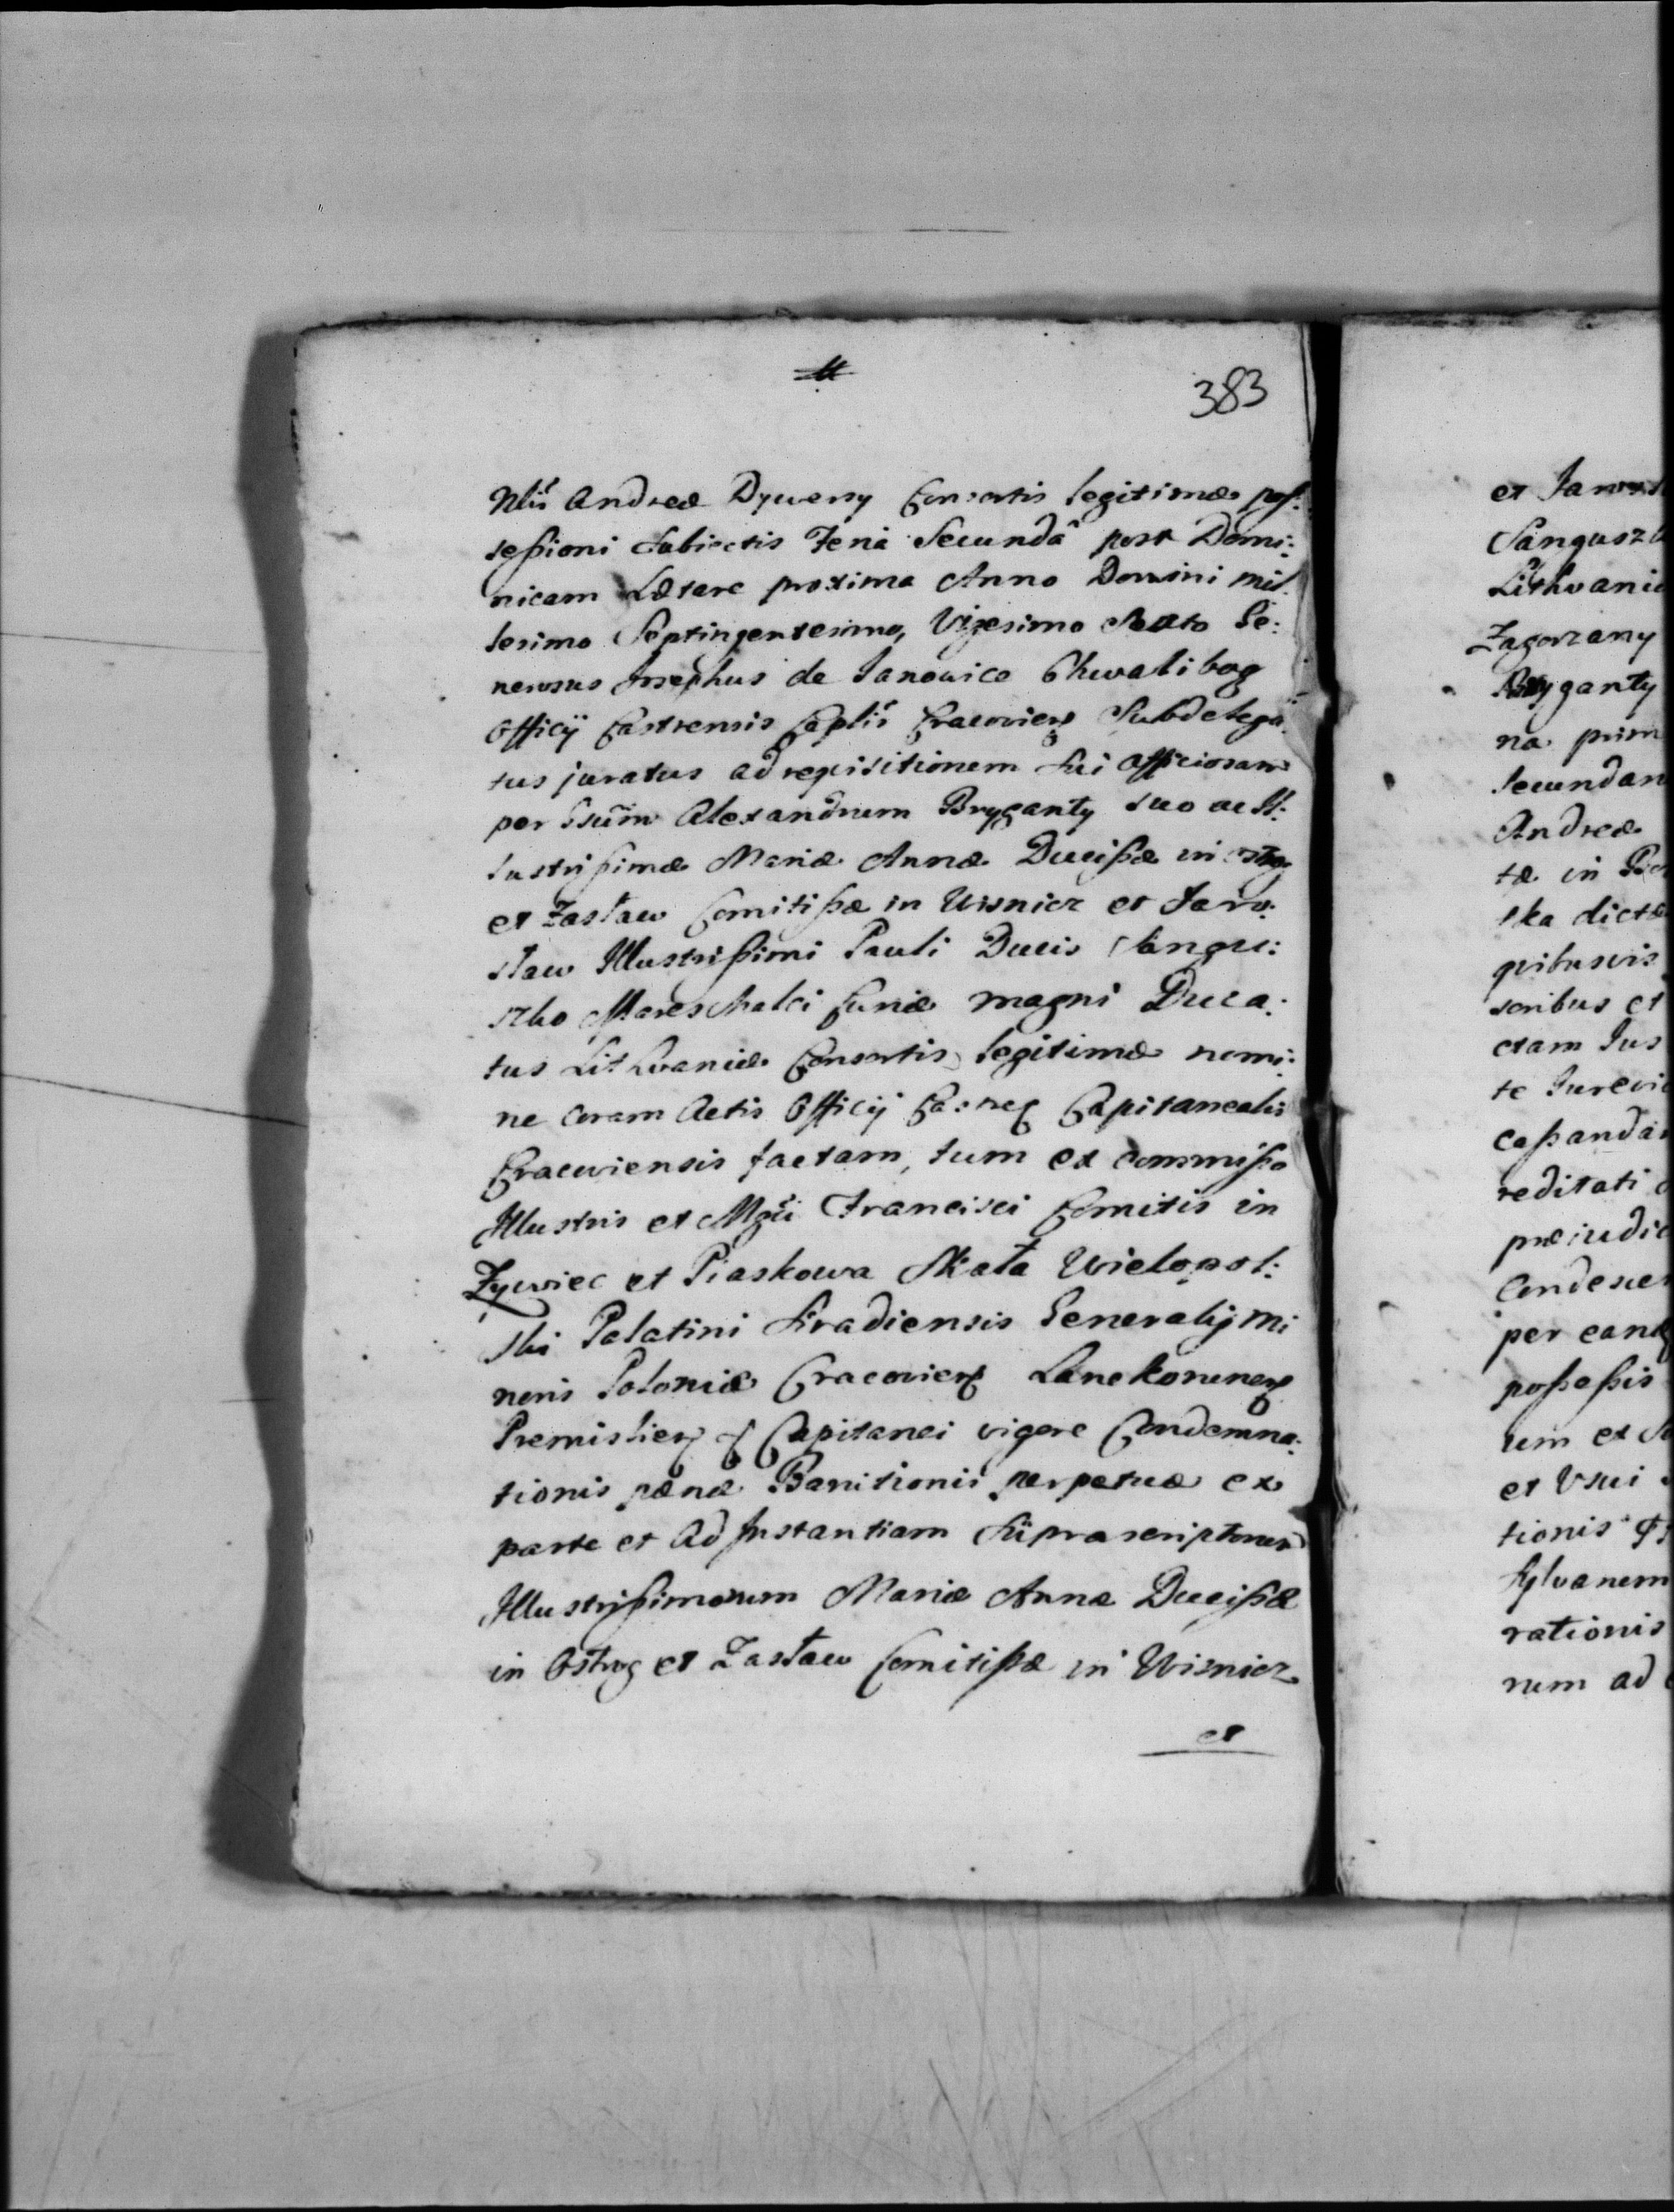 383
Nlis Andreæ Dywersy Consortis legitimæ pos:
seßioni subiectis Feria Secundâ post Domi:
nicam Lætare proxima Anno Domini mil:
lesimo Septingentesimo, Vigesimo Sexto Ge:
nerosus Josephus de Janowice Chwalibog
Officij Castrensis Caplis Cracovien Subdelega:
tus juratus ad reqisitionem sui officiosam
per Gsum Alexandrum Bryganty suo ac Il:
lustrißimæ Mariæ Annæ Ducißæ in Ostrog
et Zasław Comitißæ in Wisnicz et Jaro:
sław Illustrißimi Pauli Ducis Sangu:
szko Mareschalci Curiæ magni Duca:
tus Lithvaniæ Consortis legitimæ nomi:
ne coram Actis Officij Castren Capitanealis
Cracoviensis factam, tum ex commißo
Illustris et Mgci Francisci Comitis in
Zywiec et Piaskowa Skała Wielopol:
ski Palatini Siradiensis Generalis mi
noris Poloniæ Cracovien Lanckoronen
Premislien & Capitanei vigore Condemna:
tionis pænæ Banitionis perpetuæ ex
parte et ad Instantiam suprascriptorum
Illustrißimorum Mariæ Annæ Ducißæ
in Ostrog et Zasław Comitißæ in Wisnicz
et
et Jaros
Sangusz
Lithvani
Zagorzany
Bryganty
na prim
secundam
Andreæ
tæ in
ska dictæ
qvibusvis
soribus et
ctam Jus
te Jurevi
caßanda
reditati
præiudic
Condesce
per eand
poßeßis
um et
et Usui
tionis
Sylvanem
rationis
rum ad